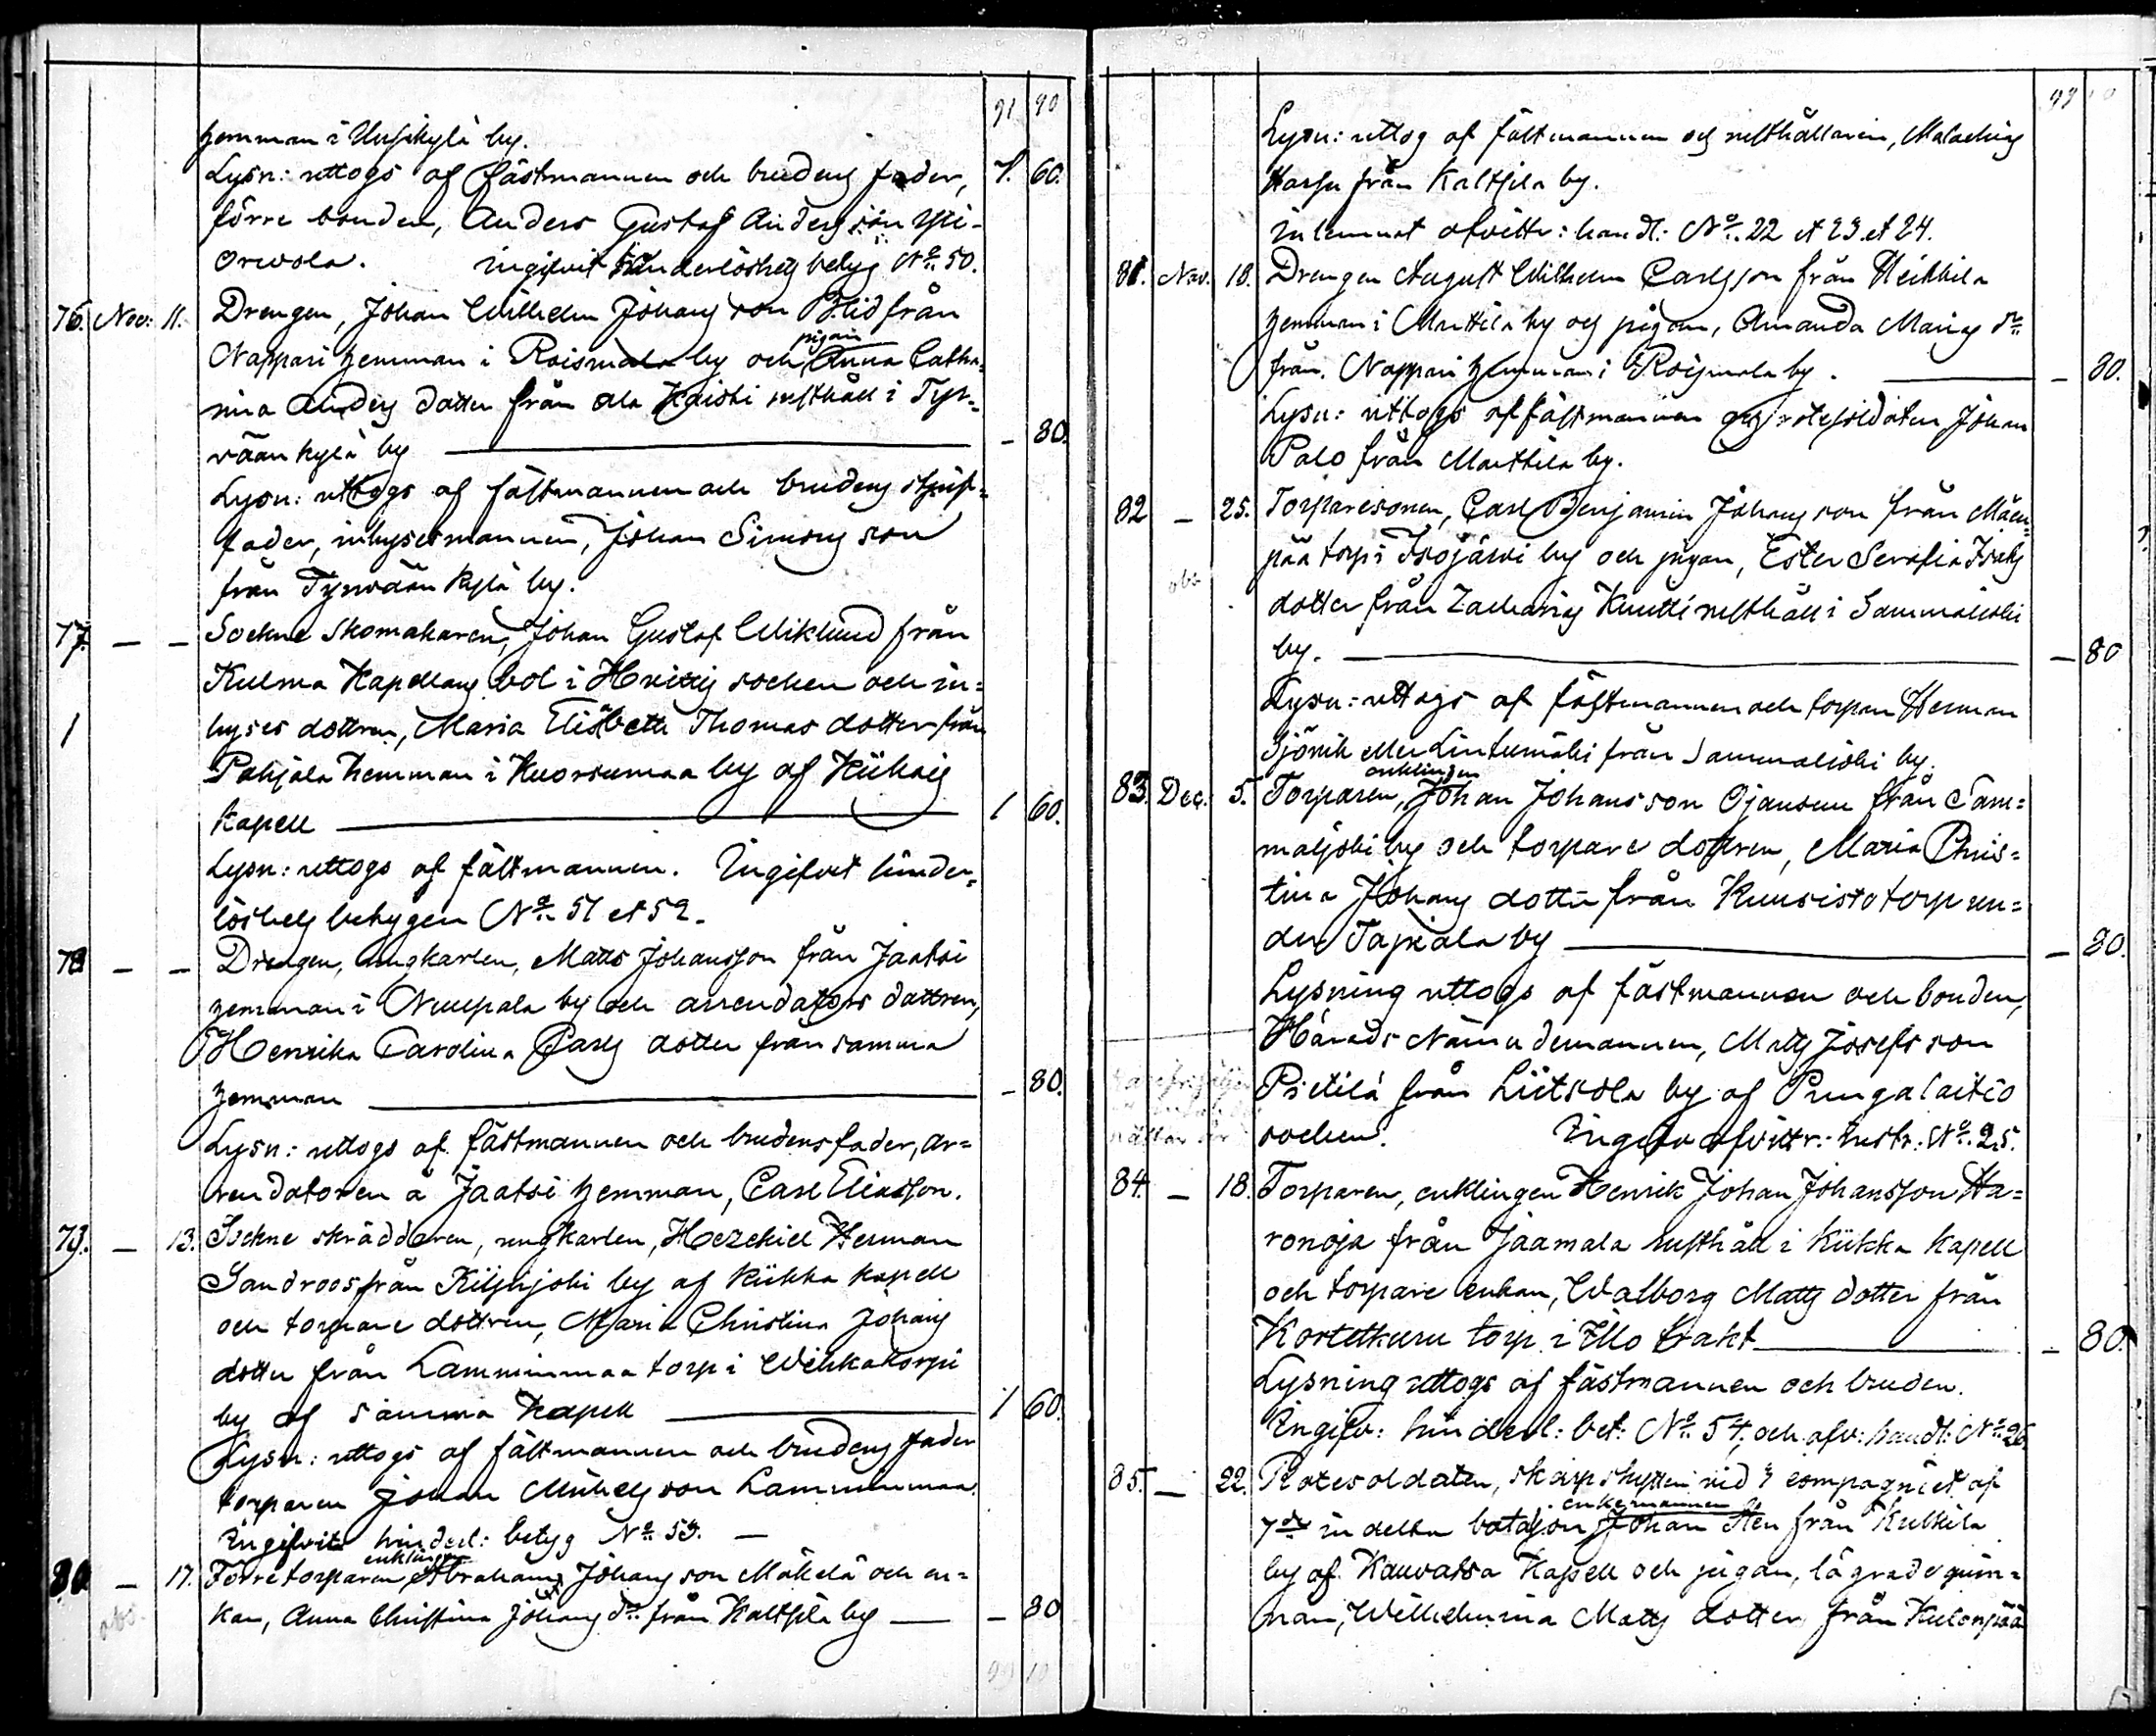 91 90
hemman i by.
Lysn: uttogs af fästmannen och brudens fader, 1. 60.
förre bonden, Anders Gustaf Andersson Yli-
Orvola. ingifvit hinderlöshets betyg No 50.
76. Nov: 11. Drengen, Johan Wilhelm Johansson Blid från
pigan
Nappari hemman i Roismala by och Anna Catha-
rina Anders dotter från Ala Kaisti rusthåll i Tyr-
väänkylä by — 80.
Lysn: uttogs af fästmannen och brudens stjuf-
fader, inhysesmannen, Johan Simons son
från Tyrvään kylä by.
77. — — Sockne skomakaren, Johan Gustaf Wiklund från
Kulma Kapellans bol i Hvittis socken och in=
1 hyses dottren, Maria Elisabeth Thomas dotter från
Pohjala hemman i Kuorsumaa by af Kiikois
kapell 1 60.
Lysn: uttogs af fästmannen. Ingifvit hinder-
löshets betygen No 51 et 52.
78 — — Drengen, ungkarlen, Matts Johansson från Jaatsi
hemman i Nuupala by och arrendators dottren,
Henrika Carolina Carls dotter från samma
hemman — 80.
Lysn: uttogs af fästmannen och brudens fader, ar=
rendatoren å Jaatsi hemman, Carl Eliasson.
79. — 13. Sockne skräddaren, ungkarlen, Hezekiel Herman
Sandroos från Kiljojoki by af Kiikka kapell
och torpare dottren, Maria Christina Johans
dotter från Lamminmaa torp i Wehkakorpi
by af samma Kapell 1 60.
Lysn: uttogs af fästmannen och brudens fader
torparen Johan Michelsson Lamminmaa.
Ingifvit hinderl: betyg No 53. —
enklingen
80. — 17. Förre torparen, Abraham Johansson Mäkelä och en=
obs. kan, Anna Christina Johans dr från Kaltsila by — — 80
99 10
99 10
Lysn: uttog af fästmannen och rusthållaren, Malachias
Harju från Kaltsila by.
inlemnat afvittr: handl: No 22 et 23 et 24.
81. Nov. 18. Drengen August Wilhelm Carlsson från Heikkilä
hemman i Marttila by och pigan, Amanda Marias dr
från Nappari hemman i Roismala by. — 80.
Lysn: uttogs af fästmannen och rotesoldaten Johan
Palo från Marttila by.
82 — 25. Torparesonen, Carl Benjamin Johansson från Mäen-
pää torp i Isojärvi by och pigan, Ester Serafia Isaks
obs dotter från Zacharias Knutti rusthåll i Sammaljoki
by. — 80
Lysn: uttogs af fästmannen och torparen Herman
Sjövik eller Lintumäki från Sammaljoki by.
enklingen
83. Dec. 5. Torparen, Johan Johansson Ojansuu från Sam=
maljoki by och torpare dottren, Maria Chris=
tina Johans dotter från Kuusisto torp un=
der Tapiola by — 80.
Lysning uttogs af fästmannen och bonden,
Härads Nämndemannen, Matts Josefs son
Pietilä från Liitsola by af Pungalaitio
socken. Ingifv afvittr: instr: No 25.
84. — 18. Torparen, enklingen Henrik Johan Johansson Ha=
ronoja från Jaamala rusthåll i Kiikka kapell
och torpare enkan, Walborg Matts dotter från
Kortetkuru torp i Illo trakt — 80.
Lysning uttogs af fästmannen och bruden.
Ingifv: hinderl: bet: No 54, och afv: handl: No 26.
85. — 22. Rotesoldaten, skarpskytten vid 3 compagniet af
enkemannen
7de indelta bataljon Johan Sten från Kukkila
by af Kauvatsa Kapell och pigan, lägrade qvin=
nan, Wilhelmina Matts dotter från Kulonpää